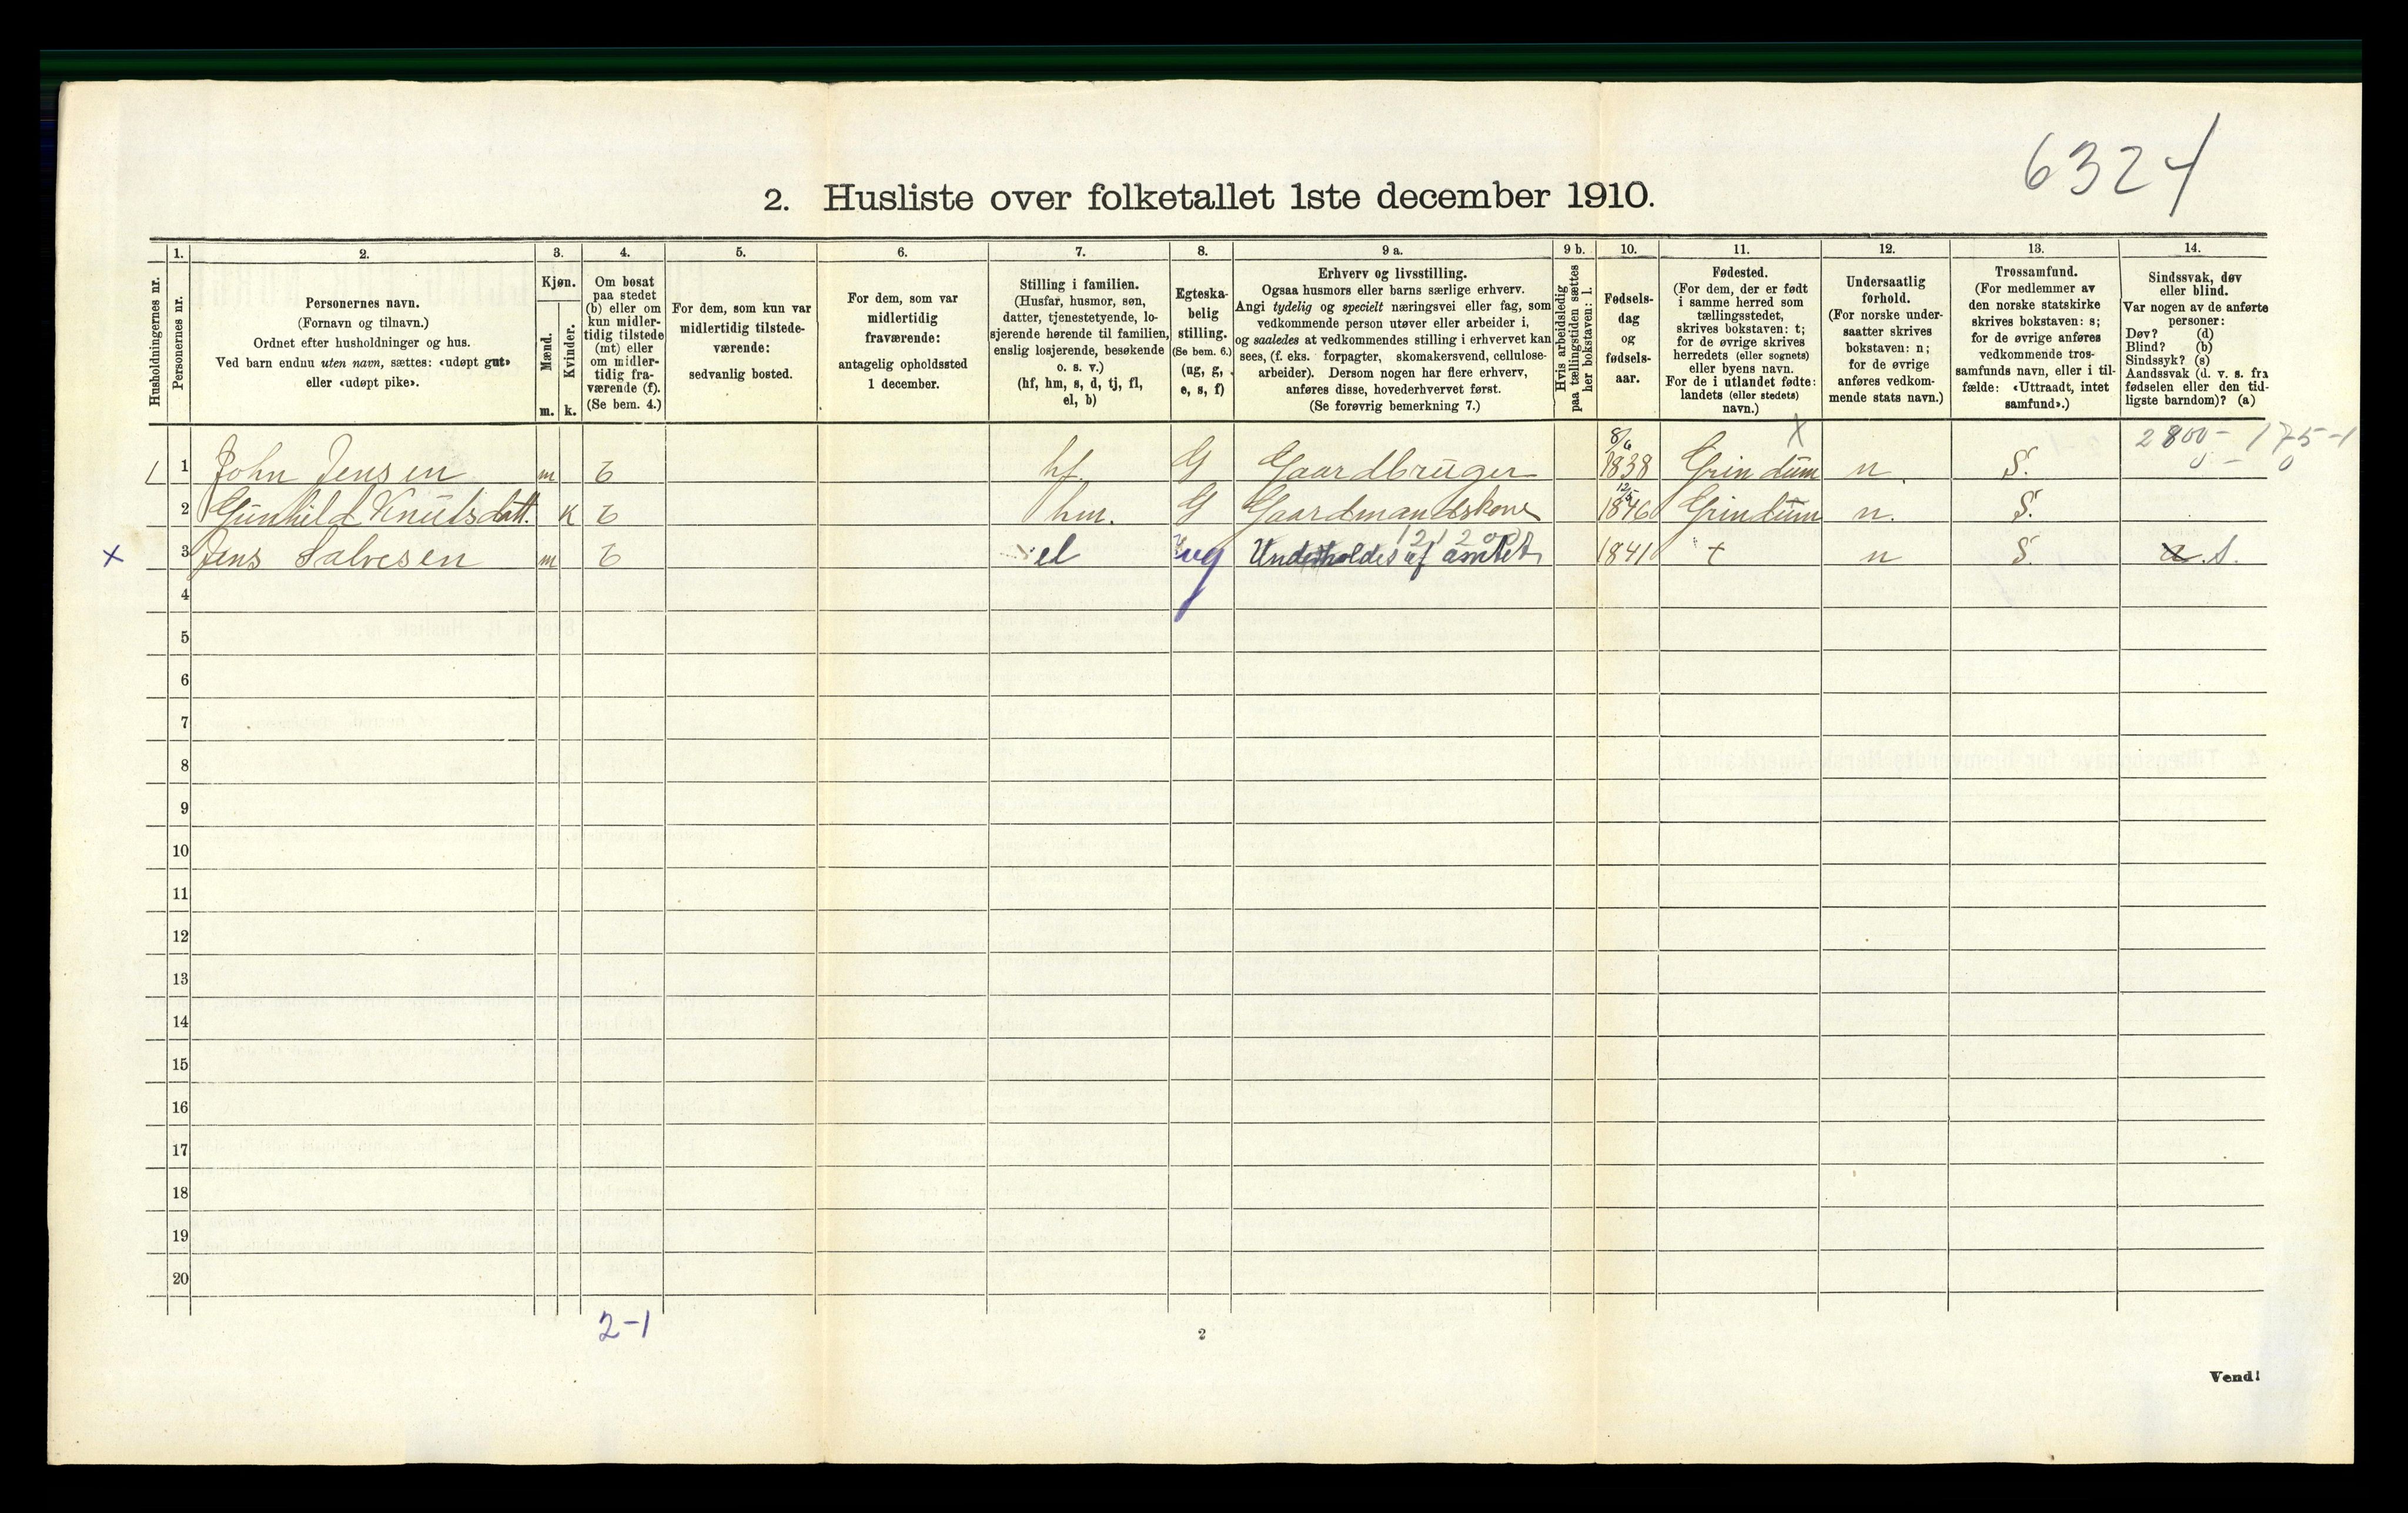 6324
2. Husliste over folketallet 1ste december 1910.
Husholdningernes nr.
1.
Personernes nr.
2.
Personernes navn.
(Fornavn og tilnavn.)
Ordnet efter husholdninger og hus.
Ved barn endnu uten navn, sættes: «udøpt gut»
eller «udøpt pike».
3.
Kjøn.
Mænd.
Kvinder.
m. k.
4.
Om bosat
paa stedet
(b) eller om
kun midler-
tidig tilstede
(mt) eller
om midler-
tidig fra-
værende (f).
(Se bem. 4.)
5.
For dem, som kun var
midlertidig tilstede-
værende:
sedvanlig bosted.
6.
For dem, som var
midlertidig
fraværende:
antagelig opholdssted
1 december.
7.
Stilling i familien.
(Husfar, husmor, søn,
datter, tjenestetyende, lo-
sjerende hørende til familien,
enslig losjerende, besøkende
o. s. v.)
(hf, hm, s, d, tj, fl,
el, b)
8.
Egteska-
belig
stilling.
(Se bem. 6.)
(ug, g,
e, s, f)
9 a.
Erhverv og livsstilling.
Ogsaa husmors eller barns særlige erhverv.
Angi tydelig og specielt næringsvei eller fag, som
vedkommende person utøver eller arbeider i,
og saaledes at vedkommendes stilling i erhvervet kan
sees, (f. eks. forpagter, skomakersvend, cellulose-
arbeider). Dersom nogen har flere erhverv,
anføres disse, hovederhvervet først.
(Se forøvrig bemerkning 7.)
9 b.
Hvis arbeidsledig
paa tællingstiden sættes
her bokstaven: l.
10.
Fødsels-
dag
og
fødsels-
aar.
11.
Fødested.
(For dem, der er født
i samme herred som
tællingsstedet,
skrives bokstaven: t;
for de øvrige skrives
herredets (eller sognets)
eller byens navn.
For de i utlandet fødte:
landets (eller stedets)
navn.)
12.
Undersaatlig
forhold.
(For norske under-
saatter skrives
bokstaven: n;
for de øvrige
anføres vedkom-
mende stats navn.)
13.
Trossamfund.
(For medlemmer av
den norske statskirke
skrives bokstaven: s;
for de øvrige anføres
vedkommende tros-
samfunds navn, eller i til-
fælde: «Uttraadt, intet
samfund».)
14.
Sindssvak, døv
eller blind.
Var nogen av de anførte
personer:
Døv? (d)
Blind? (b)
Sindssyk? (s)
Aandssvak (d. v. s. fra
fødselen eller den tid-
ligste barndom)? (a)
X 2800 - 175-1
0 - 0
1 1 John Jensen m b hf. G Gaardbruger 8/6 1838 Grindum n. S.
2 Gunhild Knutsdatt. k b hm. G Gaardmandskone 12/5 1846 Grindum n. S.
1 2 1 2 0 0
x 3 Jens Salvesen m b el ug Underholdes af amtet 1841 t n S. a. S.
4
5
6
7
8
9
10
11
12
13
14
15
16
17
18
19
20
2-1
2
Vend!